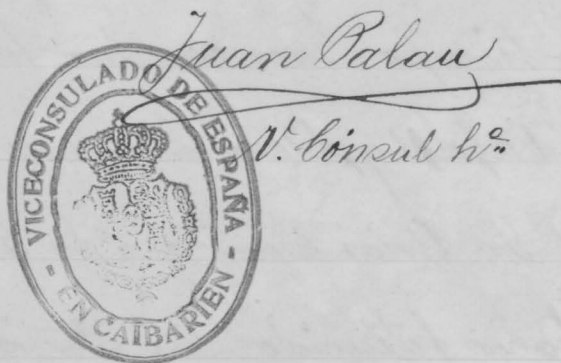 Juan Palau
V. Cónsul hº
VICECONSULADO DE ESPAÑA
- EN CAIBARIEN -